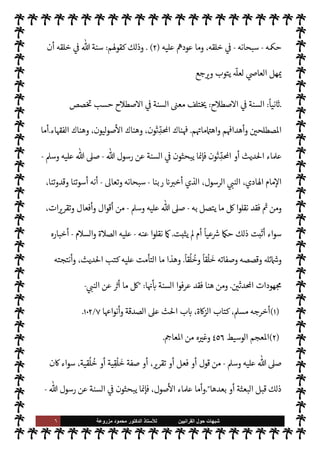 حكمه - سبحانه - في خلقه، وما عودهم عليه (٢) . وذلك كقولهم: سنة الله في خلقه أن
يمهل العاصي لعلّه يتوب ويرجع
.ثانياً: السنة في الاصطلاح: يختلف معنى السنة في الاصطلاح حسب تخصص
المصطلحين وأهدافهم واهتماماتهم. فهناك المحدِّثون، وهناك الأصوليون، وهناك الفقهاء.أما
علماء الحديث أو المحدِّثون فإنما يبحثون في السنة عن رسول الله - صلى الله عليه وسلم -
الإمام الهادي، النبي الرسول، الذي أخبرنا ربنا - سبحانه وتعالى - أنه أسوتنا وقدوتنا،
ومن ثم فقد نقلوا كل ما يتصل به - صلى الله عليه وسلم - من أقوال وأفعال وتقريرات،
سواء أثبت ذلك حكماً شرعياً أم لم يثبت. كما نقلوا عنه - عليه الصلاة والسلام - أخباره
وشمائله وقصصه وصفاته خَلْقاً وخُلُقاً. وهذا ما التأمت عليه كتب الحديث، وأنتجته
مجهودات المحدثين. ومن هنا فقد عرفوا السنة بأنها: "كل ما أثر عن النبي-
(١)أخرجه مسلم، كتاب الزكاة، باب الحث على الصدقة وأنواعها ١٠٢/٧.
(٢)المعجم الوسيط ٤٥٦ وغيره من المعاجم.
صلى الله عليه وسلم - من قول أو فعل أو تقرير، أو صفة خَلْقية أو خُلُقية، سواء كان
ذلك قبل البعثة أو بعدها".وأما علماء الأصول، فإنما يبحثون في السنة عن رسول الله -
شبهات حول القرآنيين للأستاذ الدكتور محمود مزروعة ٦